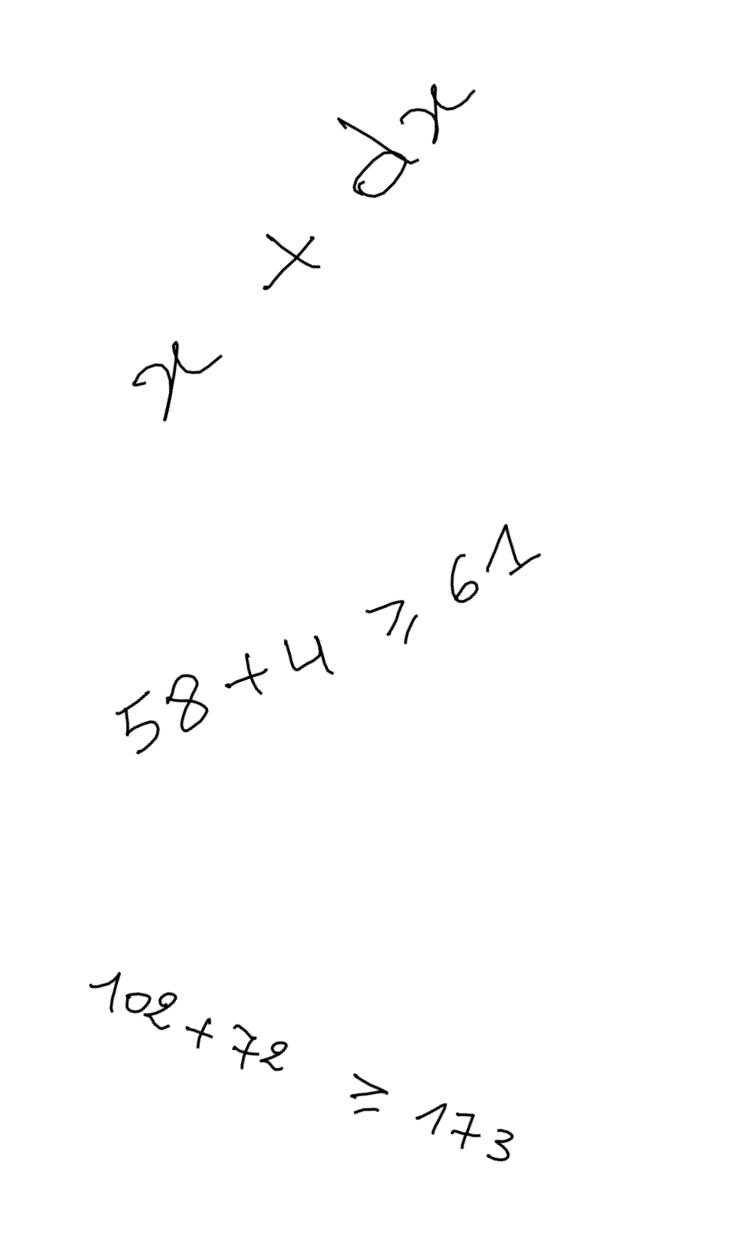 x × dx
58 + 4 ⩾ 61
102 + 72 ≥ 173